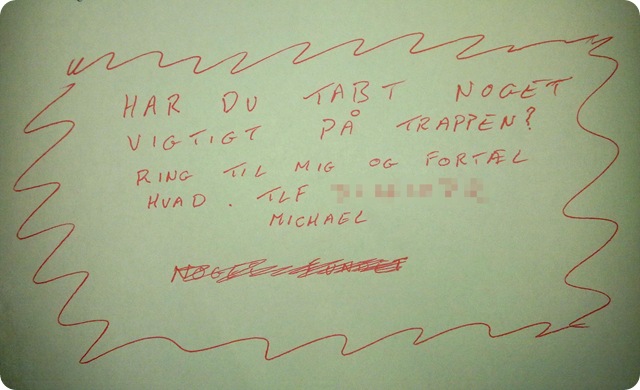 HAR DU TABT NOGET
VIGTIGT PÅ TRAPPEN?
RING TIL MIG OG FORTÆL
HVAD. TLF
MICHAEL